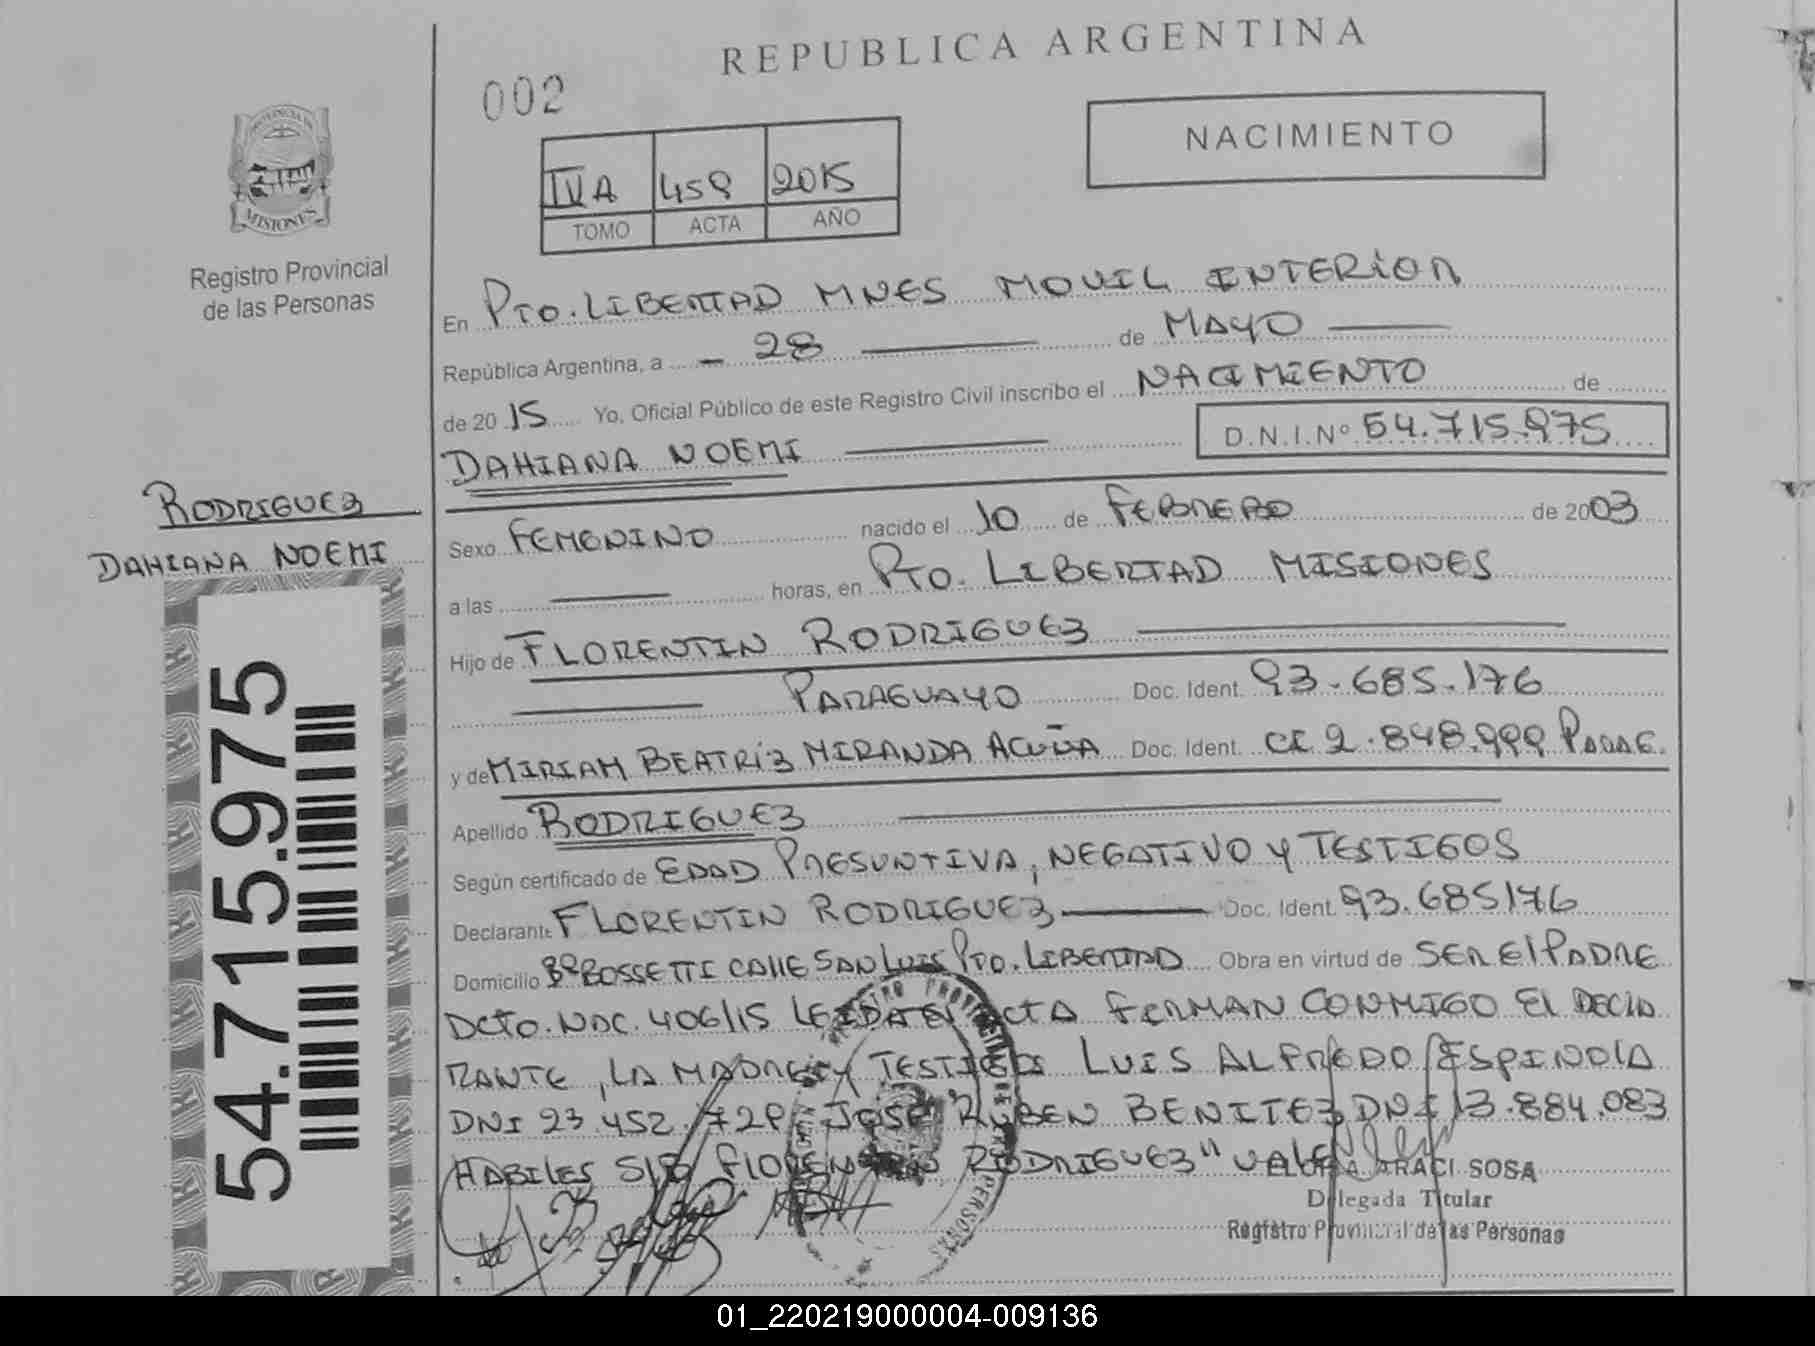 REPUBLICA ARGENTINA
002
NACIMIENTO
IVA 459 2015
TOMO ACTA AÑO
PROVINCIA DE
MISIONES
Registro Provincial
de las Personas
En Pto. LIBERTAD MNES MOVIL INTERIOR
República Argentina, a - 28 de MAYO
de 2015 Yo, Oficial Público de este Registro Civil inscribo el NACIMIENTO de
DAHIANA NOEMI D.N.I.Nº 54.715.975
RODRIGUEZ
DAHIANA NOEMI
Sexo FEMENINO nacido el 10 de FEBRERO de 2003
a las horas, en Pto. LIBERTAD MISIONES
Hijo de FLORENTIN RODRIGUEZ
PARAGUAYO Doc. Ident. 93.685.176
y de MIRIAM BEATRIZ MIRANDA ACUÑA Doc. Ident. CI. 2.848.999 PARAG.
Apellido RODRIGUEZ
Según certificado de EDAD PRESUNTIVA, NEGATIVO Y TESTIGOS
Declarante FLORENTIN RODRIGUEZ Doc. Ident. 93.685176
Domicilio Bº BOSSETTI CALLE SAN LUIS Pto. LIBERTAD Obra en virtud de SER El PADRE
DCTO. NAC. 406/15 LEIDA EL ACTA FIRMAN CONMIGO El DECLA
RANTE, LA MADRE Y TESTIGOS LUIS ALFREDO ESPINDOLA
DNI 23.452.729 JOSE RUBEN BENITEZ DNI 13.884.083
HABILES S/R FLORENTIN RODRIGUEZ" VALE
ARACI SOSA
Delegada Titular
Registro Provincial de las Personas
54.715.975
01_220219000004-009136